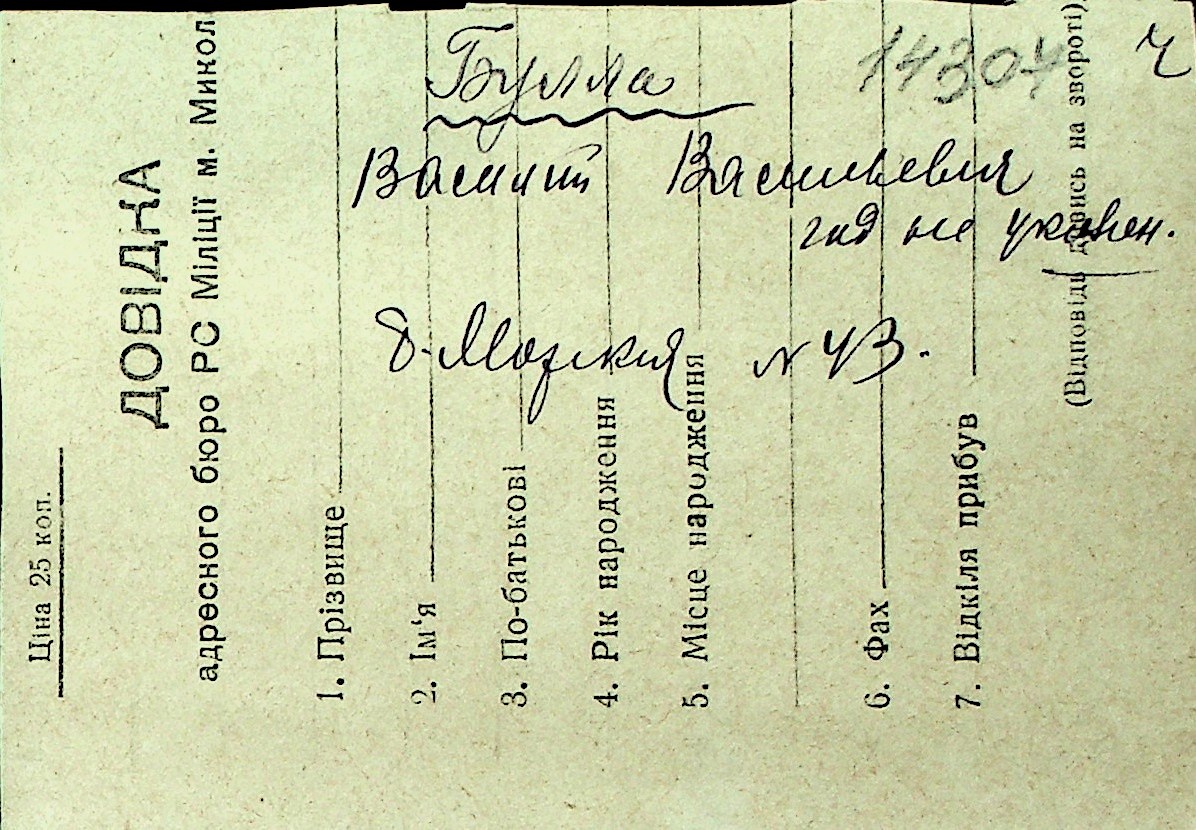 Ціна 25 коп.
ДОВІДКА
адресного бюро РС Міліції м. Микол
1. Прізвище
2. Ім'я
3. По-батькові
4. Рік народження
5. Місце народження
6. Фах
7. Відкіля прибув
(Відповідь дивись на звороті)
14307
Булла
Василий Васильевич
год не указан.
8. Морская № 43.